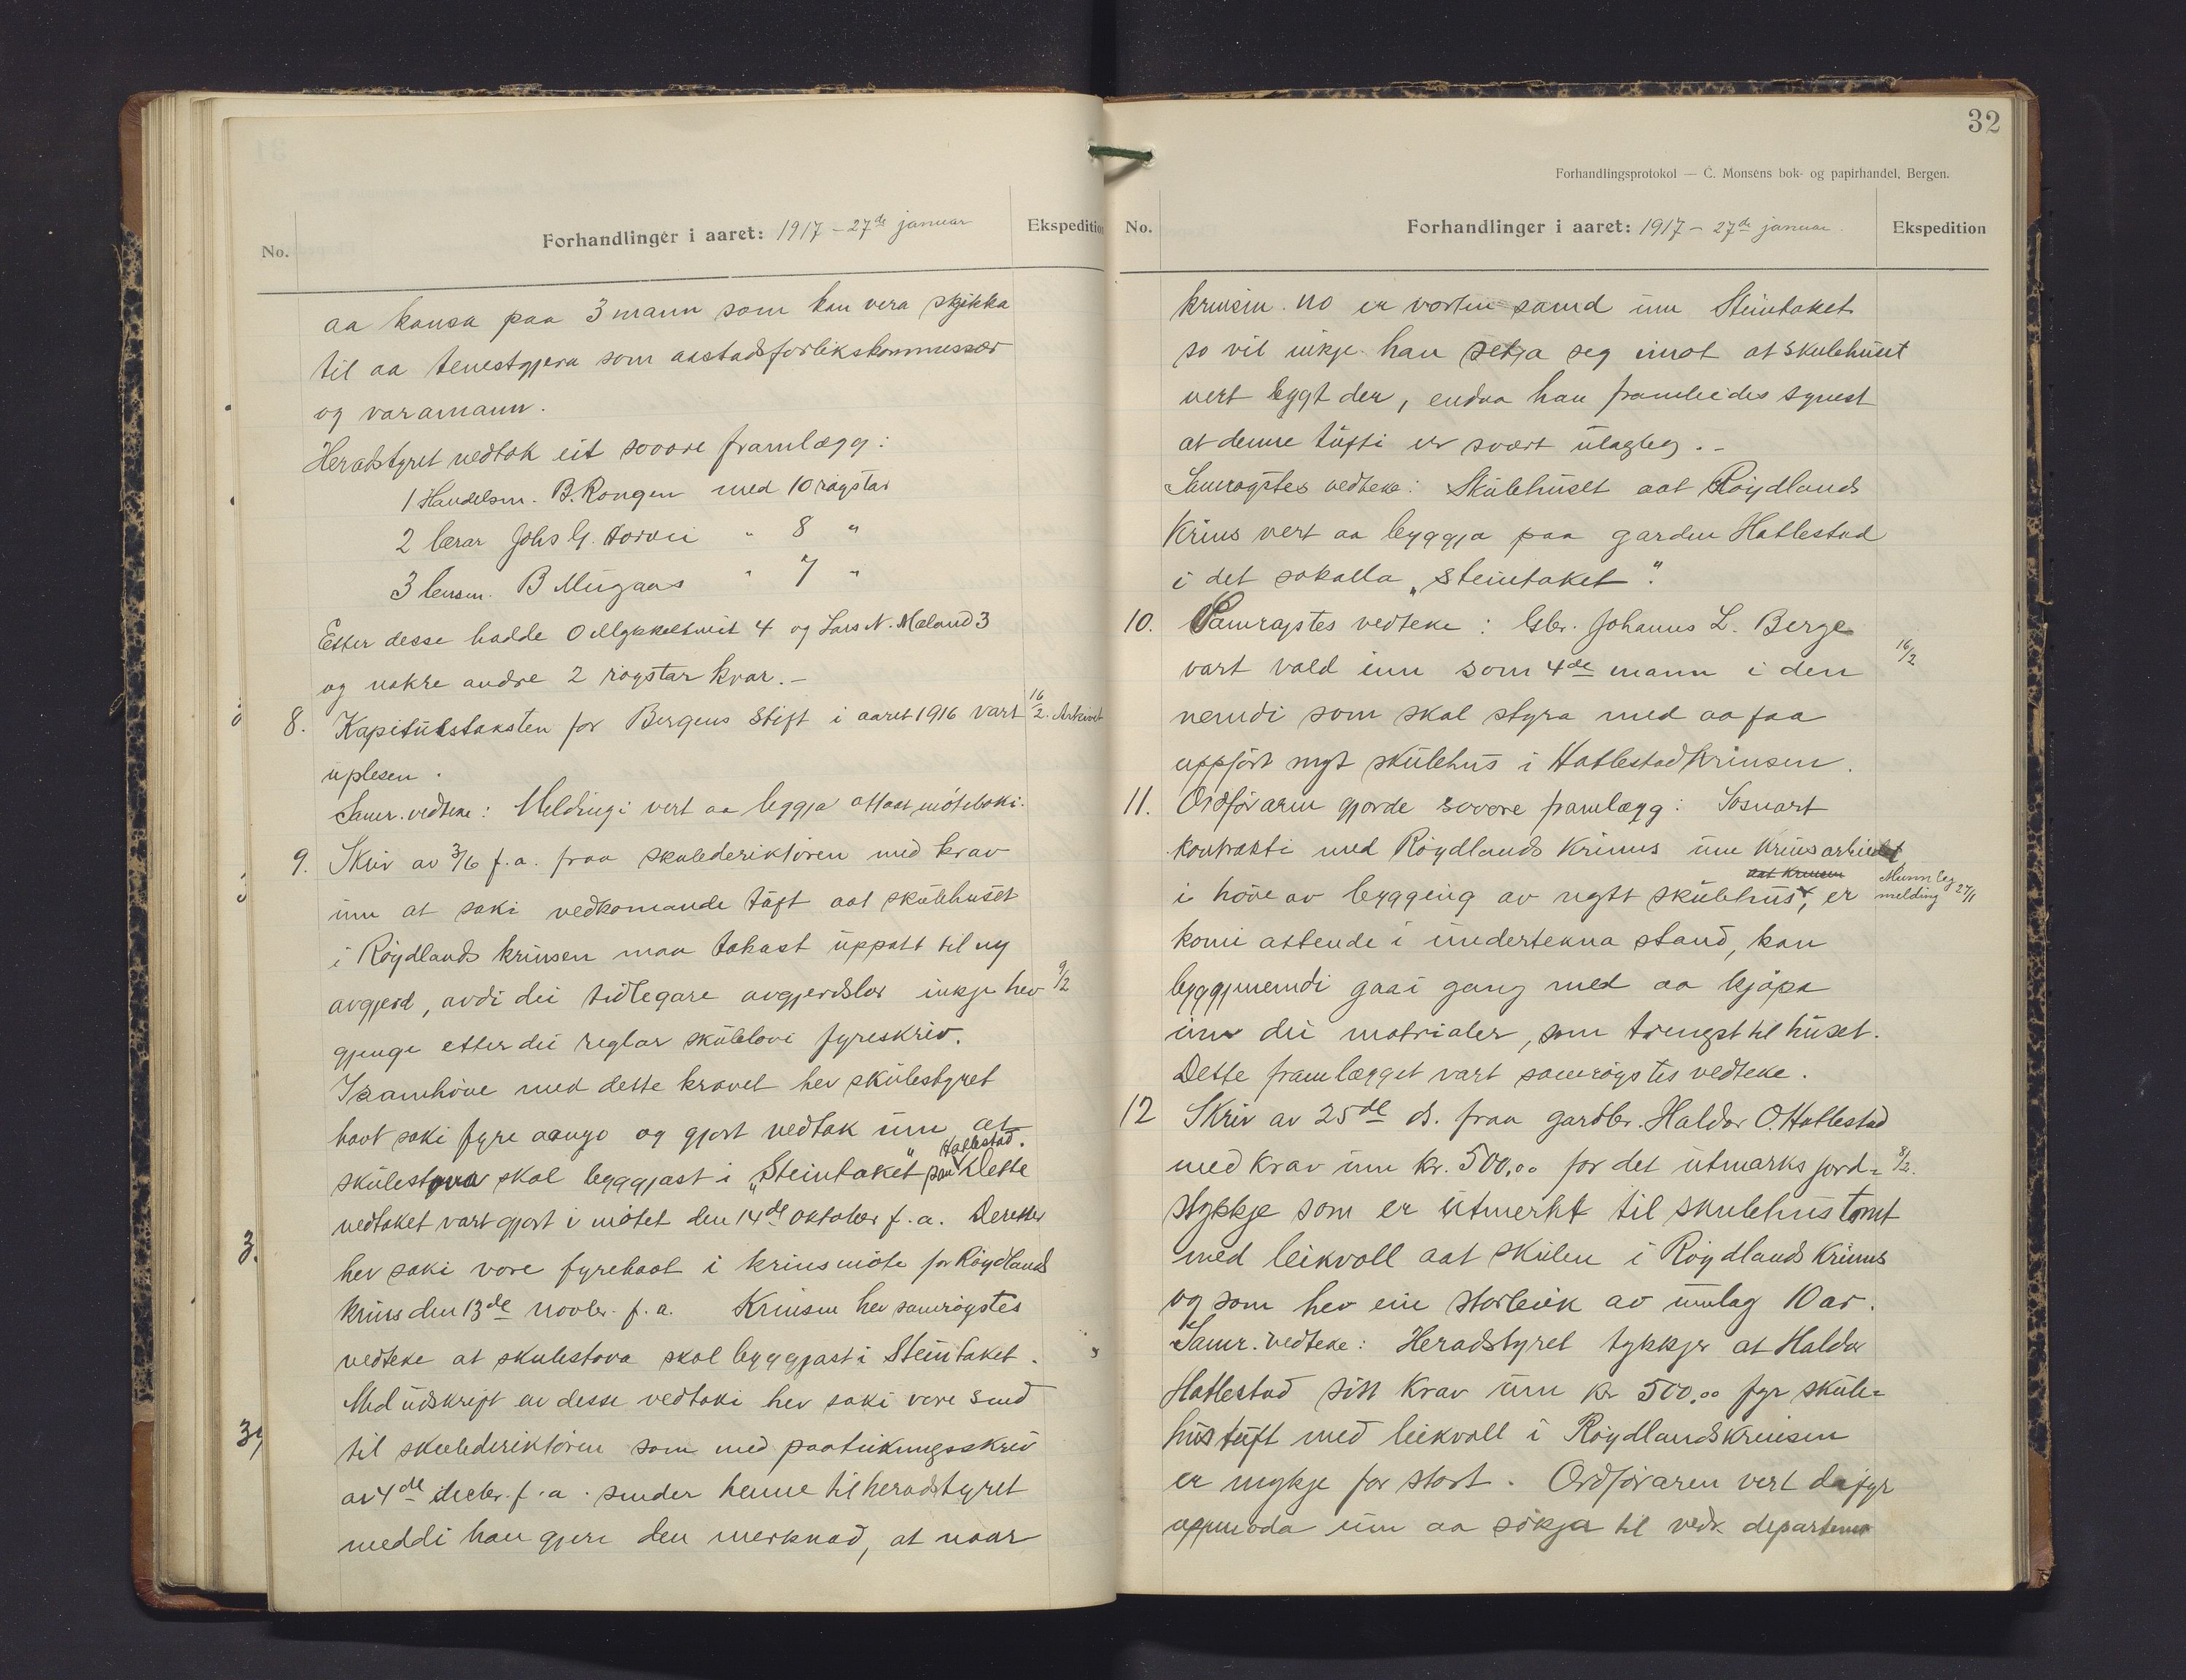 No.
Forhandlinger i aaret: 1917 – 27de januar
Ekspedition
aa kausa paa 3 mann som kan vera skjikka
til aa tenestgjera som aastadsforlikskommissær
og varamann.
Heradstyret vedtok eit sovore framlægg:
1 Handelsm. B. Rongen med 10 røgstar
2 lærar Johs G. " 8 "
3 lensm. B Mugaas " 7 "
Etter desse hadde O Mykkeltveit 4 og Lars N. Mæland 3
og nokre andre 2 røgstar kvar. –
8. Kapitulstaksten for Bergens Stift i aaret 1916 vart 16/2. Arkivet
uplesen.
Samr. vedteke: Meldingi vert aa leggja attaat møteboki.
9. Skriv av 3/6 f.a. fraa skulederiktøren med krav
um at saki vedkomande tuft aat skulehuset
i Røydlands krinsen maa takast uppatt til ny
avgjerd, avdi dei tidlegare avgjerdslor inkje hev 9/2
gjenge etter dei reglar skulelovi fyreskriv.
I samhøve med dette kravet hev skulestyret
havt saki fyre aango og gjort vedtak um at
Hatlestad.
skulestova skal byggjast i „Steintaket" paa Dette
vedtaket vart gjort i møtet den 14de oktober f.a. Deretter
hev saki vore fyrehavt i krinsmøte for Røydlands
krins den 13de novbr. f.a. Krinsen hev samrøgstes
vedteke at skulestova skal byggjast i Steintaket.
Med udskrift av desse vedtaki hev saki vore send
til skulederiktøren som med paateikningsskriv
av 4de decbr. f.a. sender henne til heradstyret
meddi han gjere den merknad, at naar
32
Forhandlingsprotokol — C. Monsens bok- og papirhandel, Bergen.
No.
Forhandlinger i aaret: 1917 – 27de januar.
Ekspedition
krinsen no er vorten samd um Steintaket
so vil inkje han setja seg imot at skulehuset
vert bygt der, endaa han framleides synest
at denne tufti er svært ulagleg. –
Samrøgstes vedteke: Skulehuset aat Røydlands
Krins vert aa byggja paa garden Hatlestad
i det sokalla „Steintaket".
10. Samrøgstes vedteke: Gbr. Johannes L. Berge
16/2
vart vald inn som 4de mann i den
nemdi som skal styra med aa faa
uppført nyt skulehus i Hatlestadkrinsen.
11. Ordføraren gjorde sovore framlægg: Sosnart
kontrakti med Røydlands Krinns um krinsarbeidet
aat krinsen
i høve av bygging av nytt skulehus, er Munnleg melding 27/1
komi attende i undertekna stand, kan
byggjenemdi gaa i gang med aa kjøpa
inn dei matrialer, som trengst til huset.
Dette framlægget vart samrøgstes vedteke.
12 Skriv av 25de ds. fraa gardbr. Haldor O. Hatlestad
med krav um kr. 500,00 for det utmarks jord= 8/2.
stykkje som er utmerkt til skulehustomt
med leikvoll aat skulen i Røydlands Krinns
og som hev ein storleik av umlag 10 ar.
Samr. vedteke: Heradstyret tykkjer at Haldor
Hatlestad sitt krav um kr 500,00 fyr skule=
hustuft med leikvoll i Røydlandskrinsen
er mykje for stort. Ordføraren vert dafyr
uppmoda um aa søkja til vedk. departement